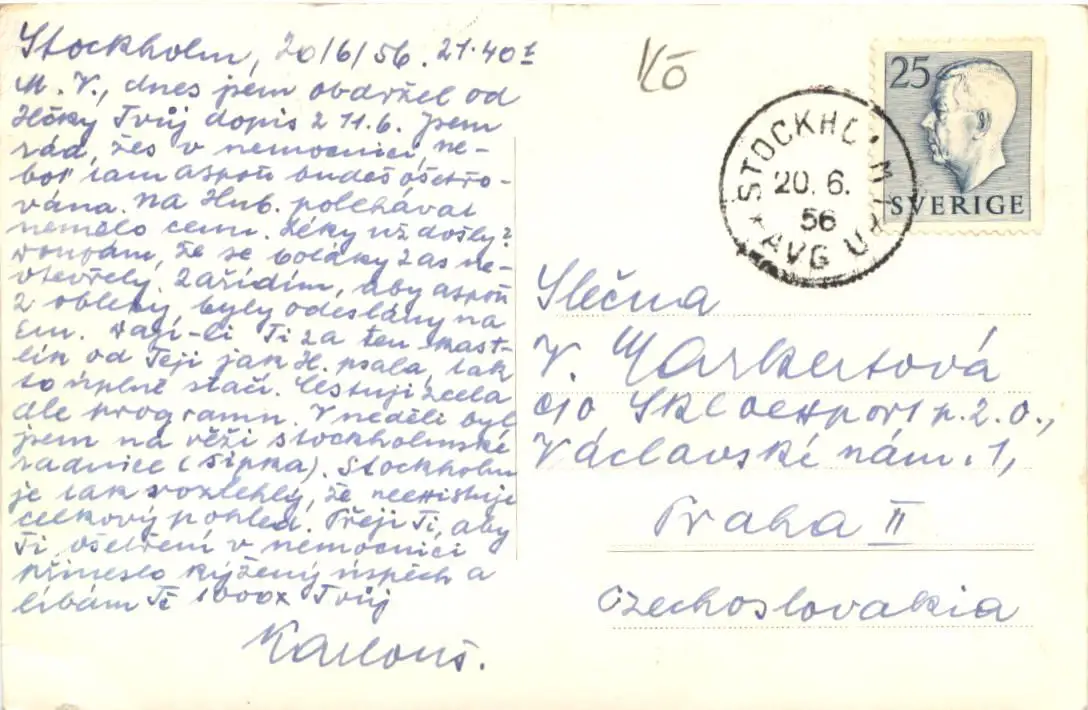 Stockholm, 20/6/56. 21.40 t
M. V., dnes jsem obdržel od
Hčky Tvůj dopis z 11.6. Jsem
rád, žes v nemocnici, ne-
boť tam aspoň budeš ošetřo-
vána. Na Hub. polehávat
nemělo cenu. Léky už došly?
Doufám, že se boláky zas ne-
otevřely. Zařídím, aby aspoň
2 obleky, byly odeslány na
Em. Dají-li Ti za ten kast-
lík od Teji jak H. psala, tak
to úplně stačí. Cestuji zcela
dle programu. V neděli byl
jsem na věži stockholmské
radnice (šipka). Stockholm
je tak rozlehlý, že neexistuje
celkový pohled. Přeji Ti, aby
Ti ošetření v nemocnici
přineslo kýžený úspěch a
líbám Tě 1000x Tvůj
Karlouš.
Kō
STOCKHOLM
20. 6.
56
AVG UPPB
25
SVERIGE
Slečna
V. Markertová
c/o Skloexport n.z.o.,
Václavské nám. 1,
Praha II
Czechoslovakia